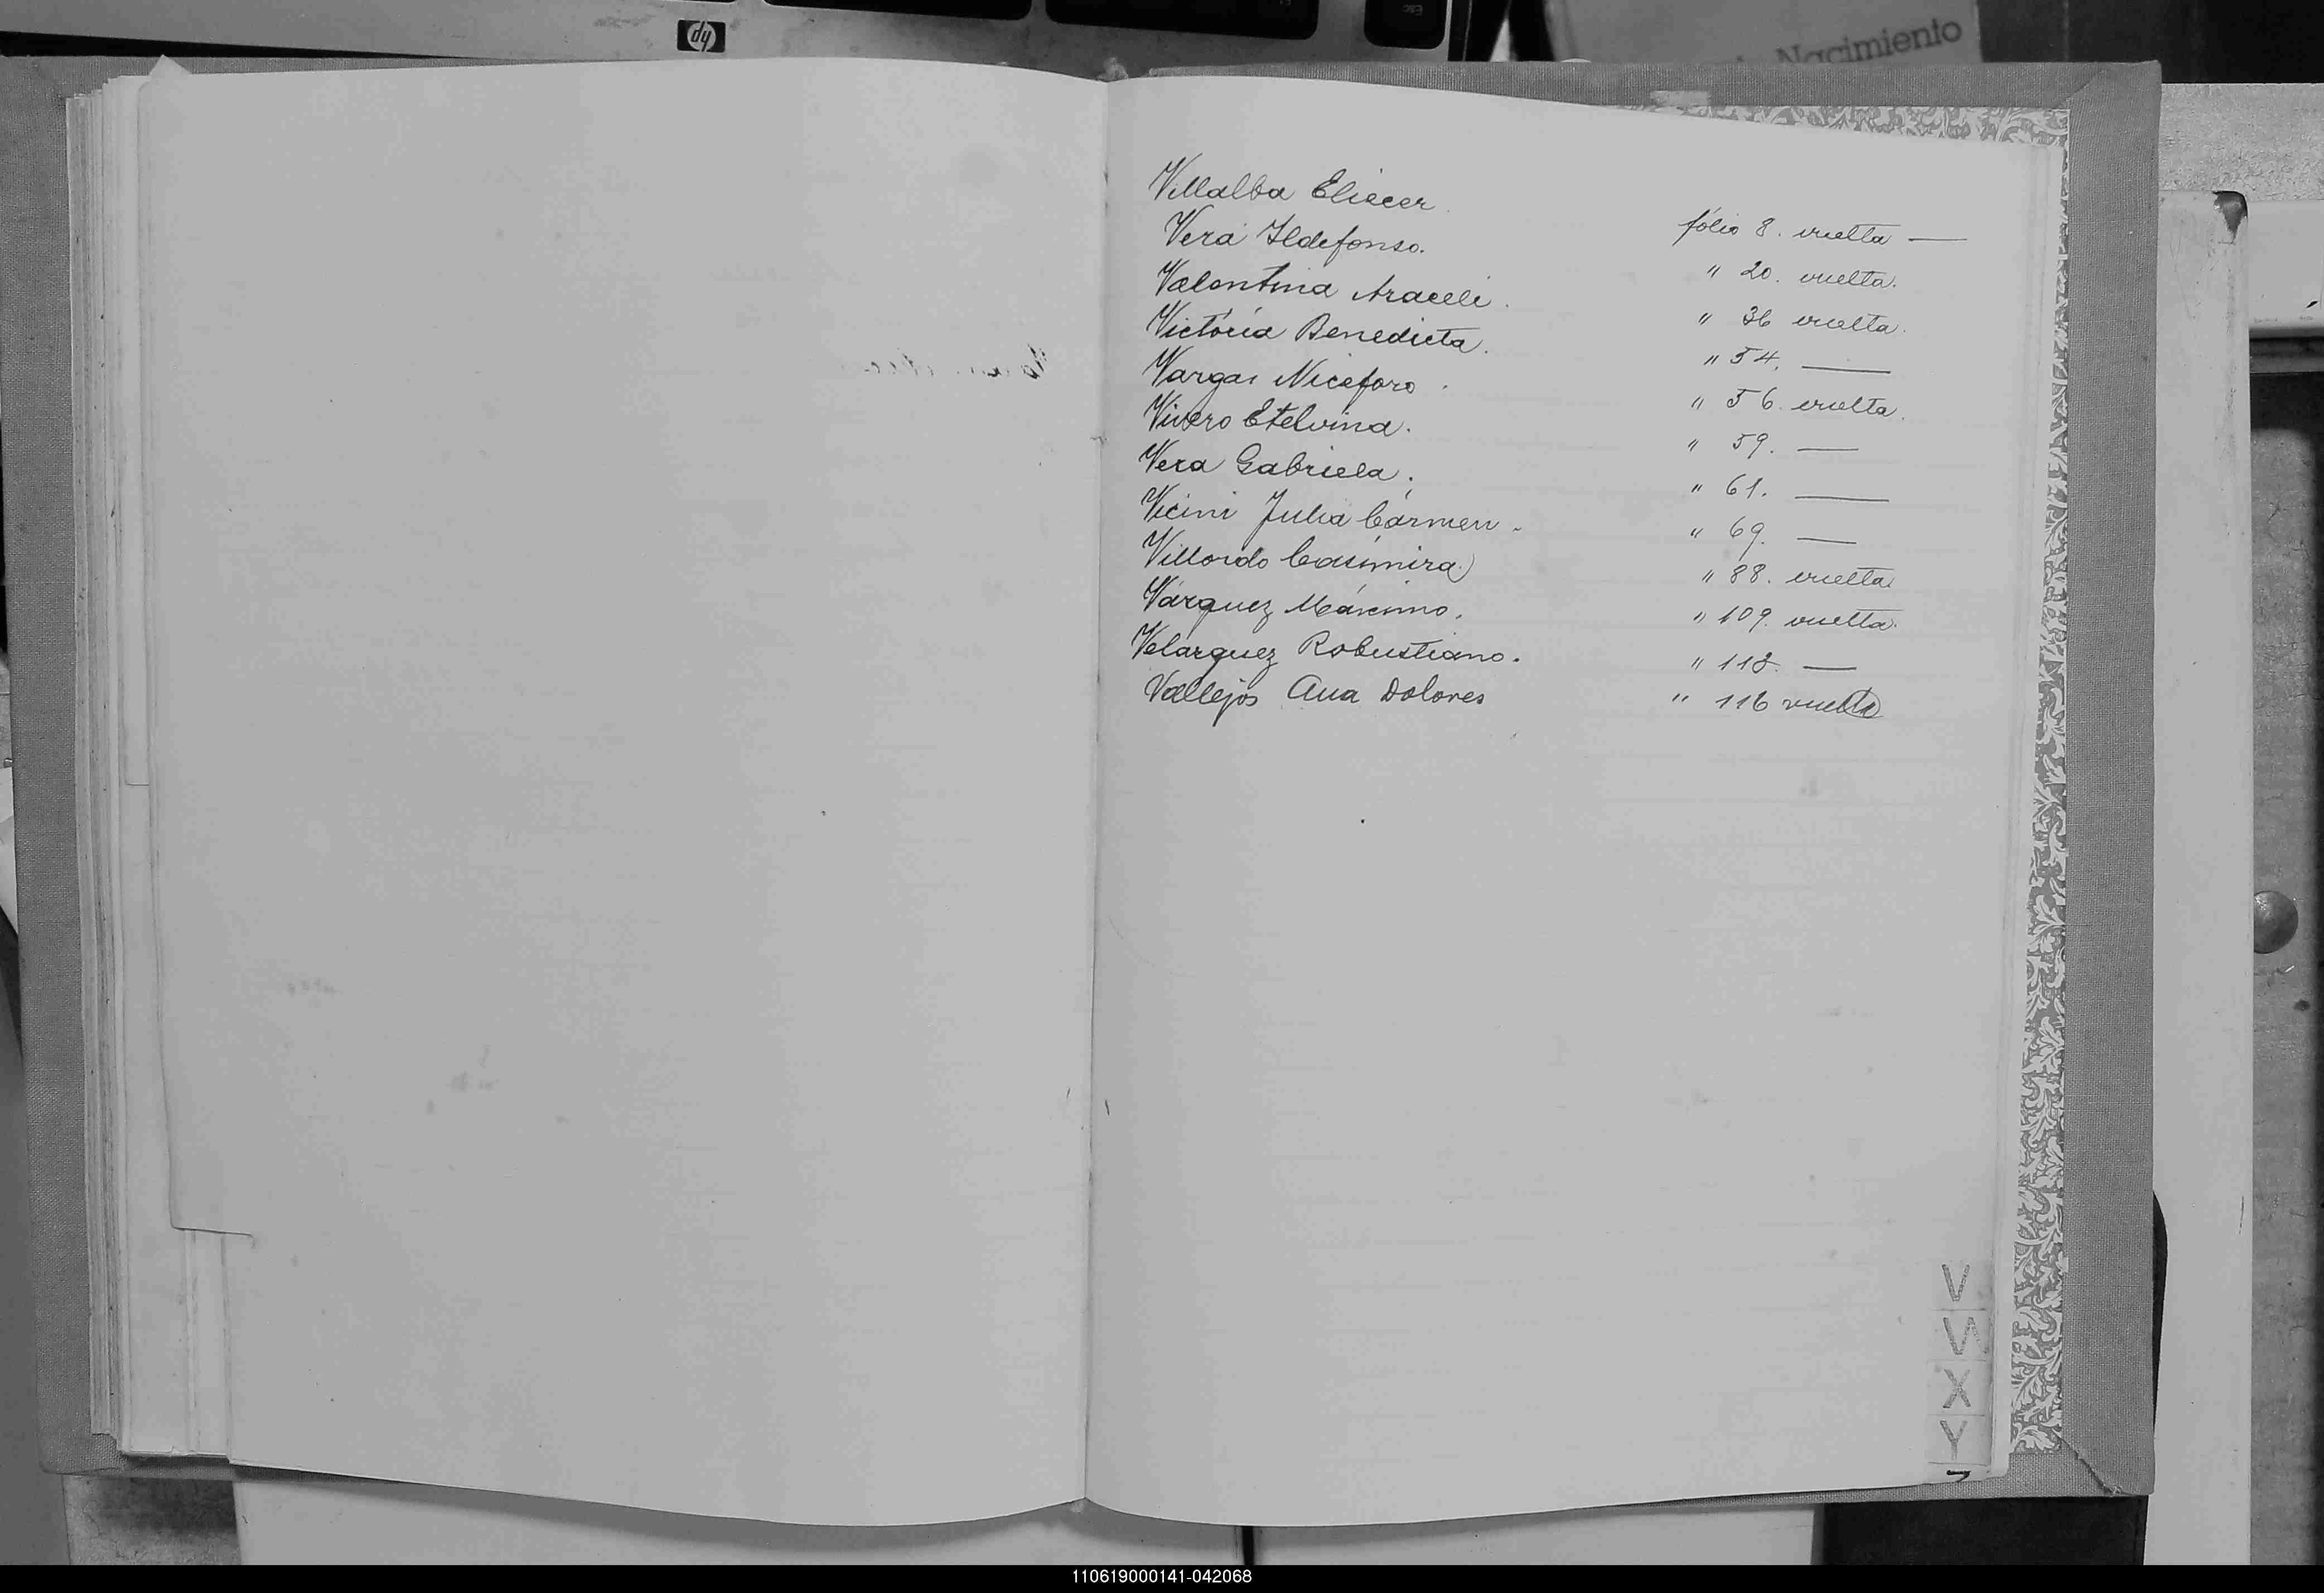 hp
Esc
Nacimiento
Villalba Eliecer fólio 8. vuelta —
Vera Ildefonso. " 20. vuelta.
Valentina Araceli. " 36 vuelta.
Victória Benedicta. " 54. —
Vargas Niceforo. " 56. vuelta.
Vivero Etelvina. " 59. —
Vera Gabriela. " 61. —
Vicini Julia Cármen. " 69. —
Villordo Casimira " 88. vuelta
Vázquez Máximo. " 109. vuelta.
Velazquez Robustiano. " 112. —
Vallejos Ana Dolores " 116 vuelta
V
W
X
Y
110619000141-042068